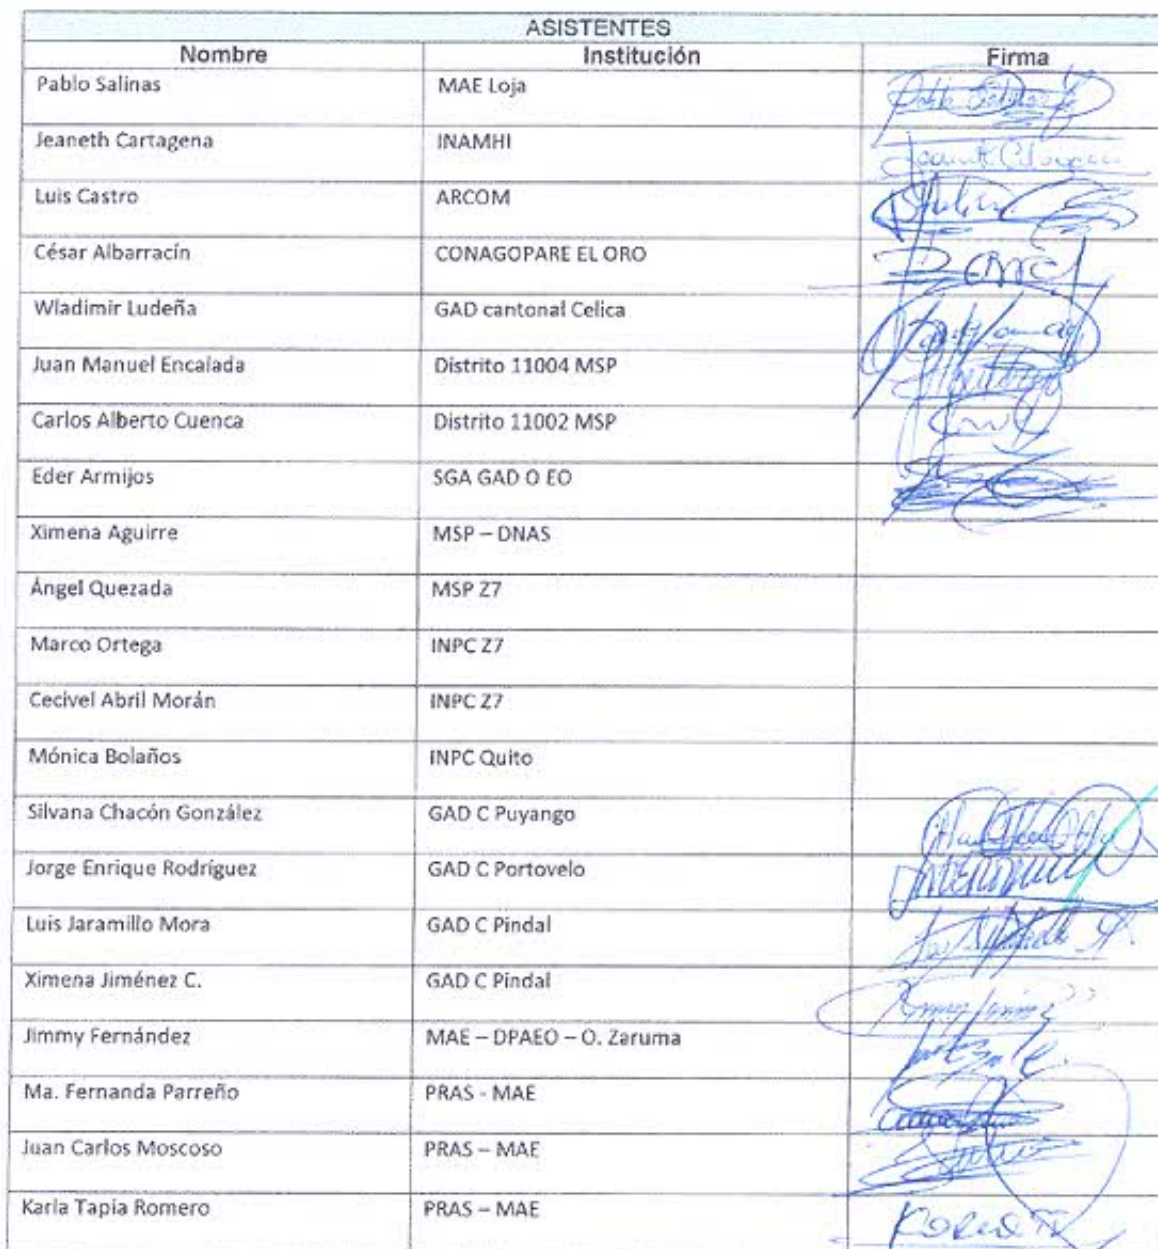 ASISTENTES
Nombre Institución Firma
Pablo Salinas MAE Loja
Jeaneth Cartagena INAMHI
Luis Castro ARCOM
César Albarracín CONAGOPARE EL ORO
Wladimir Ludeña GAD cantonal Celica
Juan Manuel Encalada Distrito 11004 MSP
Carlos Alberto Cuenca Distrito 11002 MSP
Eder Armijos SGA GAD O EO
Ximena Aguirre MSP – DNAS
Ángel Quezada MSP Z7
Marco Ortega INPC Z7
Cecivel Abril Morán INPC Z7
Mónica Bolaños INPC Quito
Silvana Chacón González GAD C Puyango
Jorge Enrique Rodríguez GAD C Portovelo
Luis Jaramillo Mora GAD C Pindal
Ximena Jiménez C. GAD C Pindal
Jimmy Fernández MAE – DPAEO – O. Zaruma
Ma. Fernanda Parreño PRAS - MAE
Juan Carlos Moscoso PRAS – MAE
Karla Tapia Romero PRAS – MAE